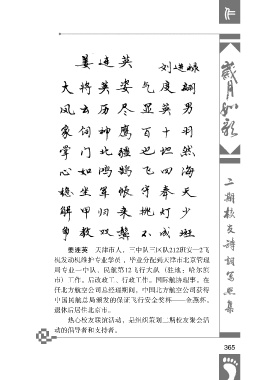 姜连英
刘连禄
大将英姿气度翩
风云历尽显英男
象何神鹰百十羽
掌门北疆也坦然
心如鸿鹄飞四海
稳坐军帐守春天
解甲归来挑灯少
身教双馨不成斑
姜连英 天津市人,三中队三区队212班安—2飞
机发动机维护专业学员,毕业分配到天津市北京管理
局专业一中队、民航第12飞行大队(驻地:哈尔滨
市)工作。后改政工、行政工作。国际航协理事。在
任北方航空公司总经理期间,中国北方航空公司获得
中国民航总局颁发的保证飞行安全奖杯——金燕杯。
退休后居住北京市。
热心校友联谊活动,是组织策划二期校友聚会活
动的倡导者和支持者。
岁月如歌
二期校友诗词写照集
365